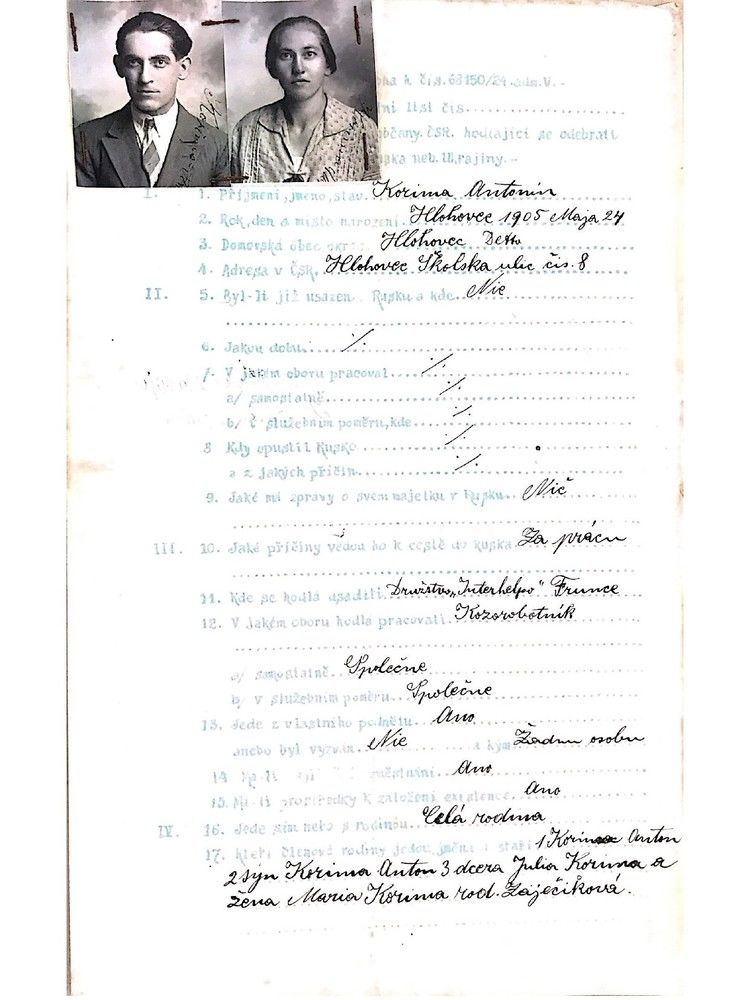 k čís. 68150/24 adm. V. -
list čís.
občany ČSR. hodlající se odebrati
neb. Ukrajiny. -
I. 1. Příjmení, jméno, stav. Korima Antonín
2. Rok, den a místo narození. Hlohovec 1905 Maja 24
3. Domovská obec okres Hlohovec Detto
4. Adresa v ČSR. Hlohovec Školska ulic čis. 8
II. 5. Byl-li již usazen Rusku a kde.. Nie
6. Jakou dobu... /.
7. V jakém oboru pracoval... /.
a/ samostatně... /.
b/ služebním poměru, kde... /.
8 Kdy opustil Rusko... /.
a z jakých příčin... /.
9. Jaké má zprávy o svém majetku v Rusku.. Nič
III. 10. Jaké příčiny vedou ho k cestě do Ruska. Za prácu
11. Kde se hodlá usaditi. Družstvo „Interhelpo" Frunce
12. V jakém oboru hodlá pracovati. Kozorobotník
a/ samostatně.. Společne
b/ v služebním poměru. Společne
13. Jede z vlastního podnětu. Ano
anebo byl vyzván. Nie a kým Žadnu osobu
14 Má-li zaměstnání. Ano
15. Má-li prostředky k založení existence. Ano
IV. 16. Jede sám nebo s rodinou. Celá rodina
17. Kteří členové rodiny jedou, jména i stáří 1 Korima Anton
2 syn Korima Anton 3 dcera Julia Korima a
žena Maria Korima rod. Zaječiková.